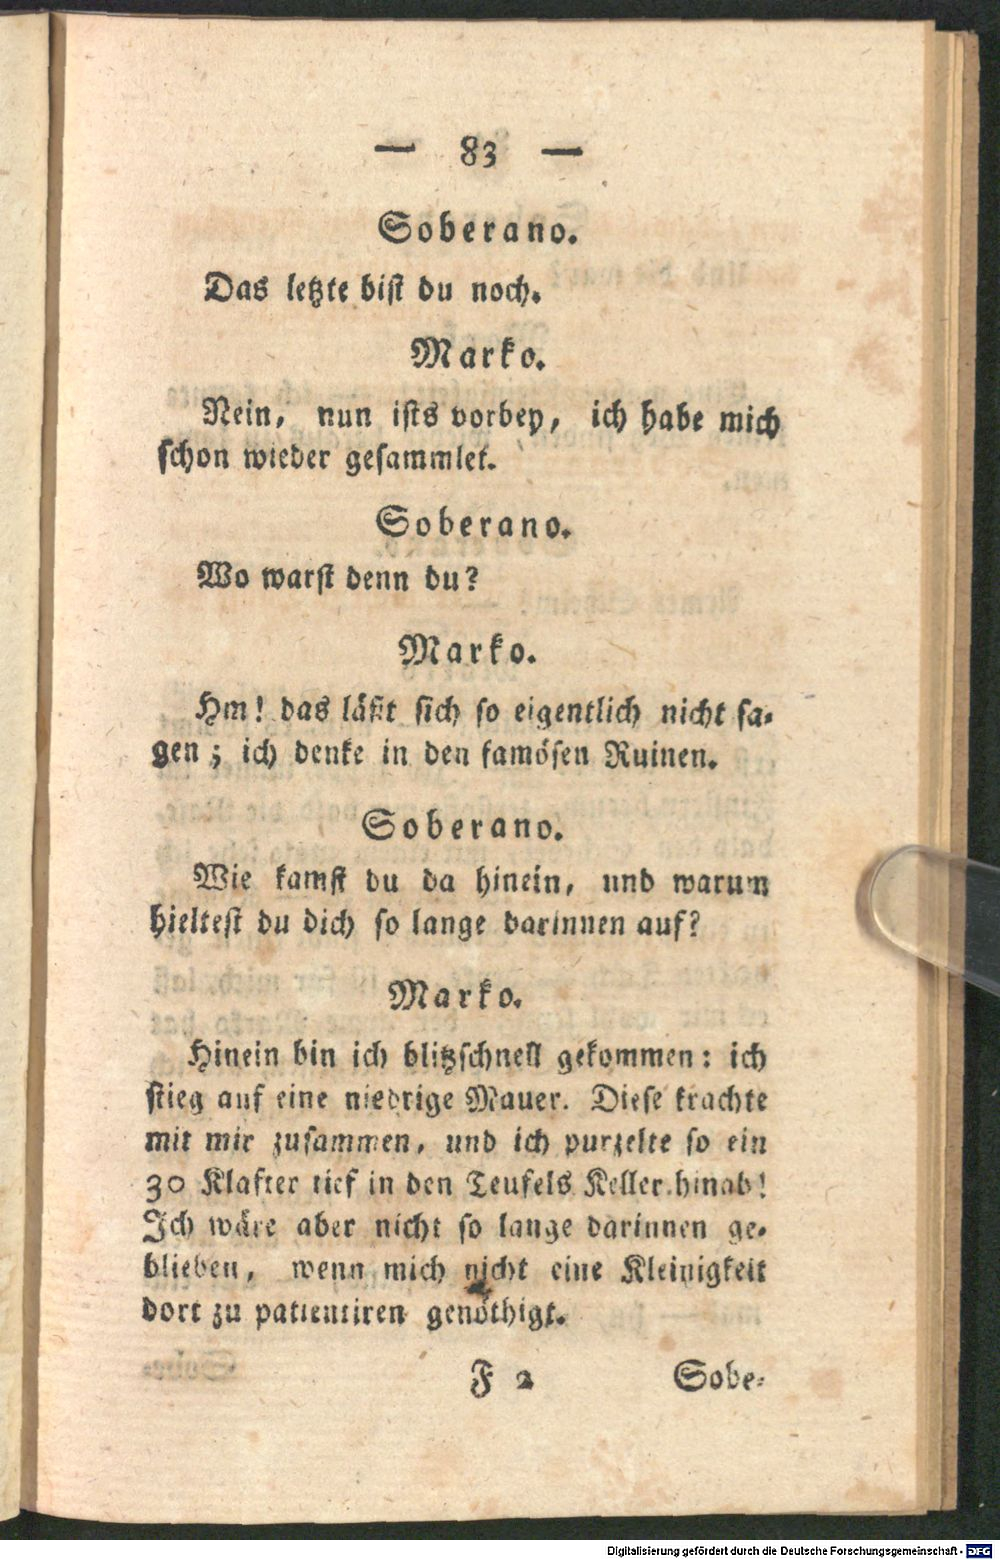 — 83 —
Soberano.
Das letzte bist du noch.
Marko.
Nein, nun ists vorbey, ich habe mich
schon wieder gesammlet.
Soberano.
Wo warst denn du?
Marko.
Hm! das läßt sich so eigentlich nicht sa-
gen; ich denke in den famösen Ruinen.
Soberano.
Wie kamst du da hinein, und warum
hieltest du dich so lange darinnen auf?
Marko.
Hinein bin ich blitzschnell gekommen: ich
stieg auf eine niedrige Mauer. Diese krachte
mit mir zusammen, und ich purzelte so ein
30 Klafter tief in den Teufels Keller hinab!
Ich wäre aber nicht so lange darinnen ge-
blieben, wenn mich nicht eine Kleinigkeit
dort zu patientiren genöthigt.
F 2 Sobe-
Digitalisierung gefördert durch die Deutsche Forschungsgemeinschaft - DFG